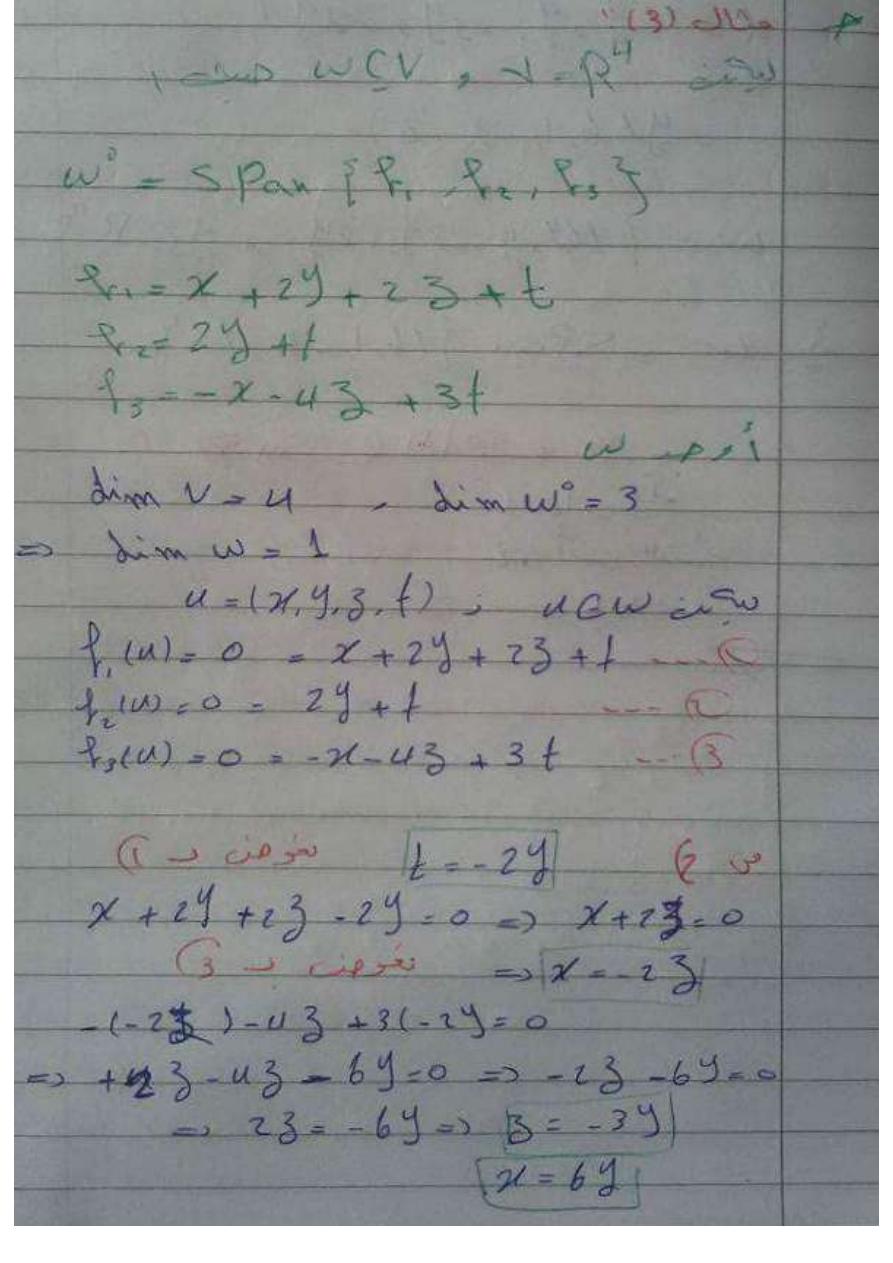 * مثال (3):
ليكن V = R⁴ , W ⊆ V حيث:
W° = span {f₁, f₂, f₃}
f₁ = x + 2y + 2z + t
f₂ = 2y + t
f₃ = -x - 4z + 3t
أوجد W
dim V = 4 , dim W° = 3
⇒ dim W = 1
ليكن u ∈ W ; u = (x, y, z, t)
f₁(u) = 0 = x + 2y + 2z + t ---- ①
f₂(u) = 0 = 2y + t ---- ②
f₃(u) = 0 = -x - 4z + 3t ---- ③
من ② t = -2y نعوض بـ ①
x + 2y + 2z - 2y = 0 ⇒ x + 2z = 0
⇒ x = -2z نعوض بـ ③
-(-2z) - 4z + 3(-2y = 0
⇒ +2z - 4z - 6y = 0 ⇒ -2z - 6y = 0
⇒ 2z = -6y ⇒ z = -3y
x = 6y